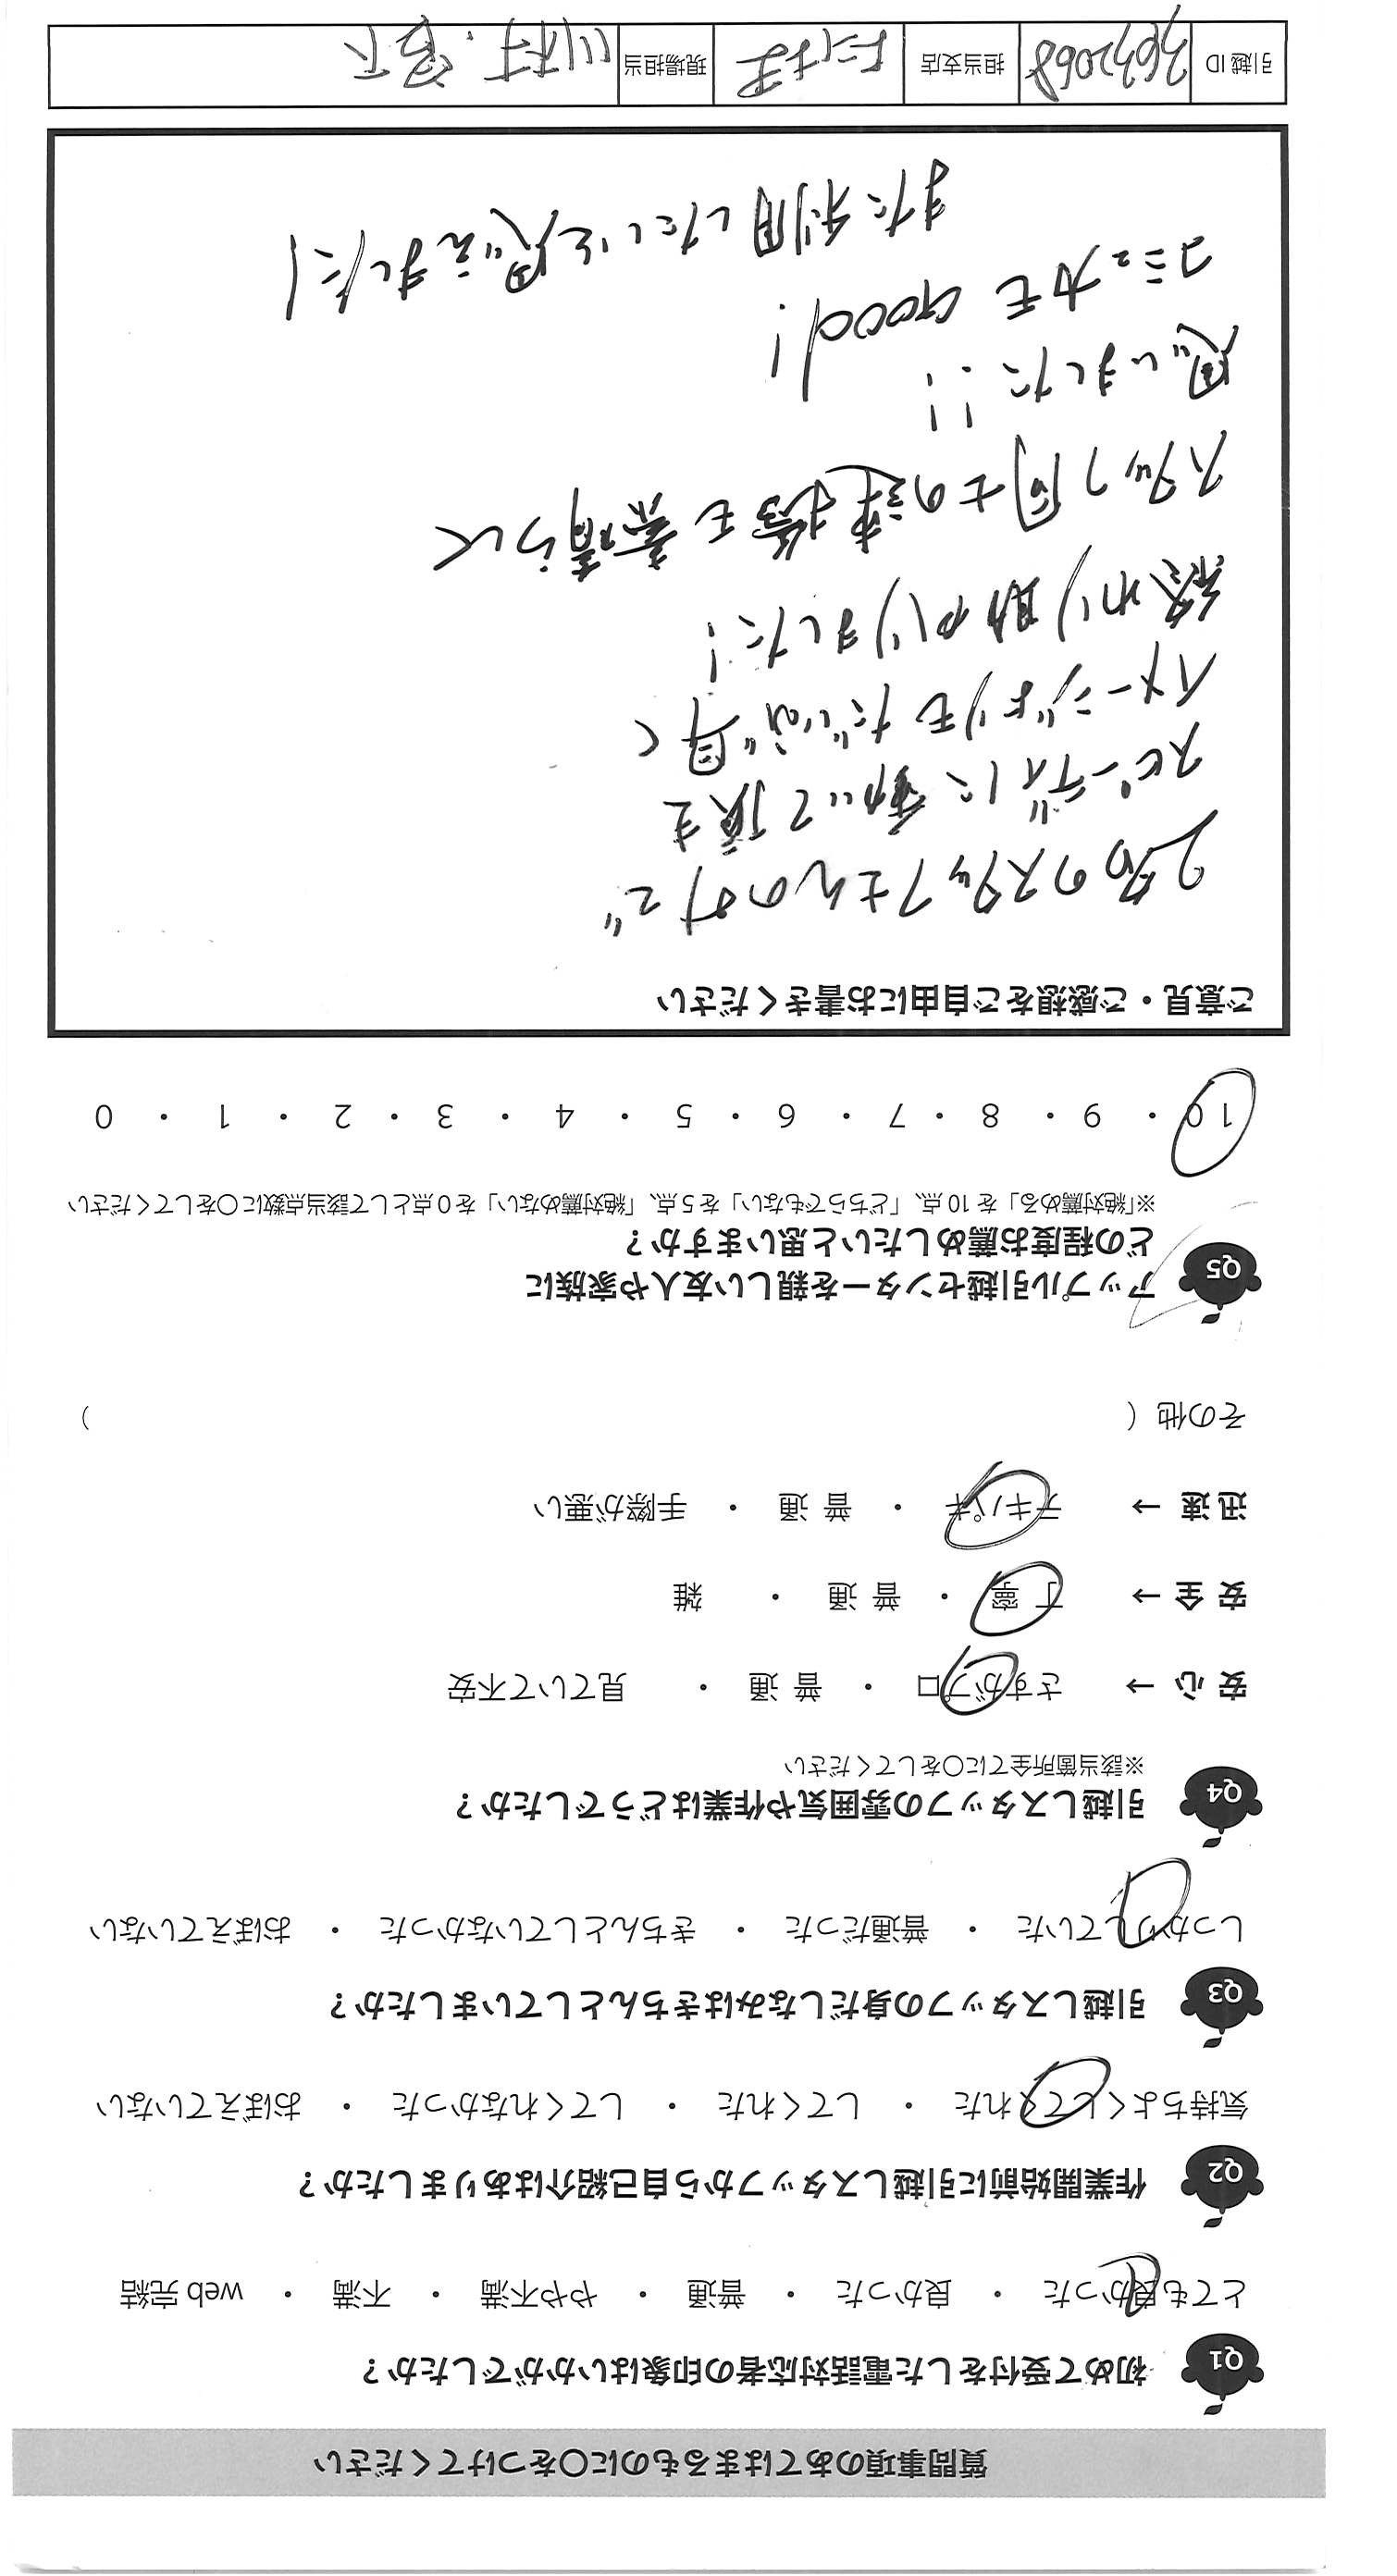 質問事項のあてはまるものに〇をつけてください
Q1 初めて受付をした電話対応者の印象はいかがでしたか？
とても良かった ・ 良かった ・ 普通 ・ やや不満 ・ 不満 ・ web 完結
Q2 作業開始前に引越しスタッフから自己紹介はありましたか？
気持ちよくしてくれた ・ してくれた ・ してくれなかった ・ おぼえていない
Q3 引越しスタッフの身だしなみはきちんとしていましたか？
しっかりしていた ・ 普通だった ・ きちんとしていなかった ・ おぼえていない
Q4 引越しスタッフの雰囲気や作業はどうでしたか？
※該当箇所全てに〇をしてください
安 心 → さすがプロ ・ 普 通 ・ 見ていて不安
安 全 → 丁 寧 ・ 普 通 ・ 雑
迅 速 → テキパキ ・ 普 通 ・ 手際が悪い
その他（ ）
Q5 アップル引越センターを親しい友人や家族に
どの程度お薦めしたいと思いますか？
※「絶対薦める」を 10 点、「どちらでもない」を 5 点、「絶対薦めない」を 0 点として該当点数に〇をしてください
10 ・ 9 ・ 8 ・ 7 ・ 6 ・ 5 ・ 4 ・ 3 ・ 2 ・ 1 ・ 0
ご意見・ご感想をご自由にお書きください
2名のスタッフさんの方で
スピーディに動いて頂き
イメージよりもだいぶ早く
終わり助かりました！
スタッフ同士の連携も素晴らしく
思いました！！
コミュ力も Good！
また利用したいと思えました！
引越 ID 担当支店 現場担当 川村